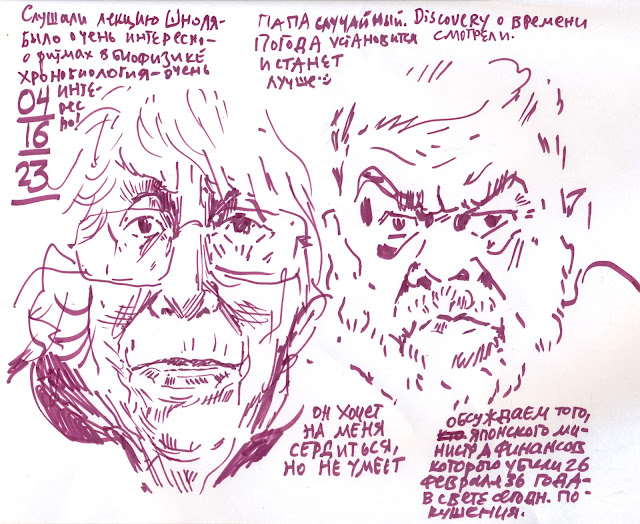 Слушали лекцию Шноля-
было очень интересно-
о ритмах в биофизике
хронобиология-очень
инте-
рес
но!
04
16
23
ПАПА СЛУЧАЙНЫЙ. Discovery о времени
СМОТРЕЛИ.
ПОГОДА УСТАНОВИТСЯ
И СТАНЕТ
ЛУЧШЕ
ОН ХОЧЕТ
НА МЕНЯ
СЕРДИТЬСЯ,
НО НЕ УМЕЕТ
ОБСУЖДАЕМ ТОГО,
ЯПОНСКОГО МИ-
НИСТРА ФИНАНСОВ
КОТОРОГО УБИЛИ 26
ФЕВРАЛЯ 36 ГОДА-
В СВЕТЕ СЕГОДН. ПО-
КУШЕНИЯ.